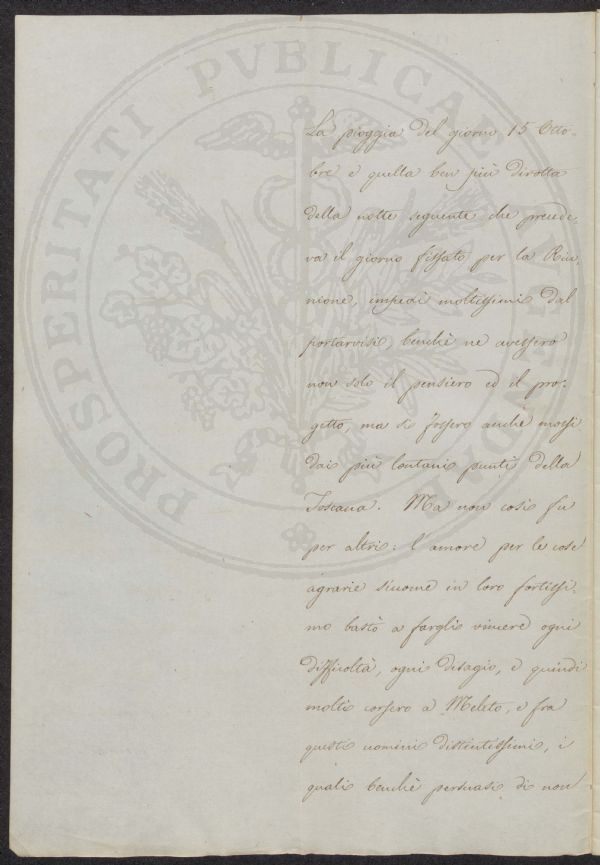 PROSPERITATI PVBLICAE AVGENDAE
La pioggia del giorno 15 Otto-
bre e quella ben più dirotta
della notte seguente che precede-
va il giorno fissato per la Riu-
nione, impedì moltissimi dal
portarvisi, benchè ne avessero
non solo il pensiero ed il pro-
getto, ma si fossero anche mossi
dai più lontani punti della
Toscana. Ma non così fu
per altri: l'amore per le cose
agrarie siccome in loro fortissi-
mo bastò a fargli vincere ogni
difficoltà, ogni disagio, e quindi
molti corsero a Meleto, e fra
questi uomini distintissimi, i
quali benchè persuasi di non